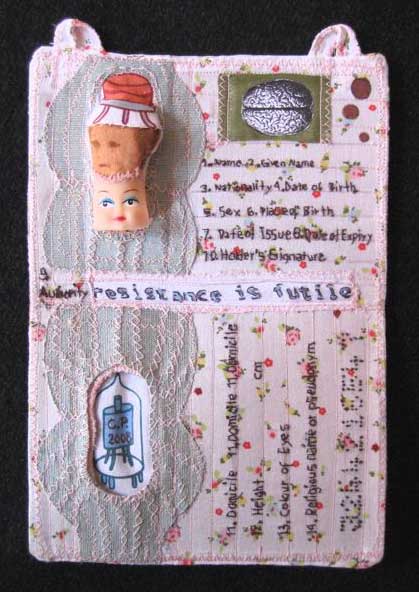 1. Name 2. Given Name
3. Nationality 4. Date of Birth
5. Sex 6. Place of Birth
7. Date of Issue 8. Date of Expiry
10. Holder's Signature
9
Authority
resistance is futile
C.P.
2008
11. Domicile 11. Domicile 11. Domicile
12. Height cm
13. Colour of Eyes
14. Religious name or pseudonym